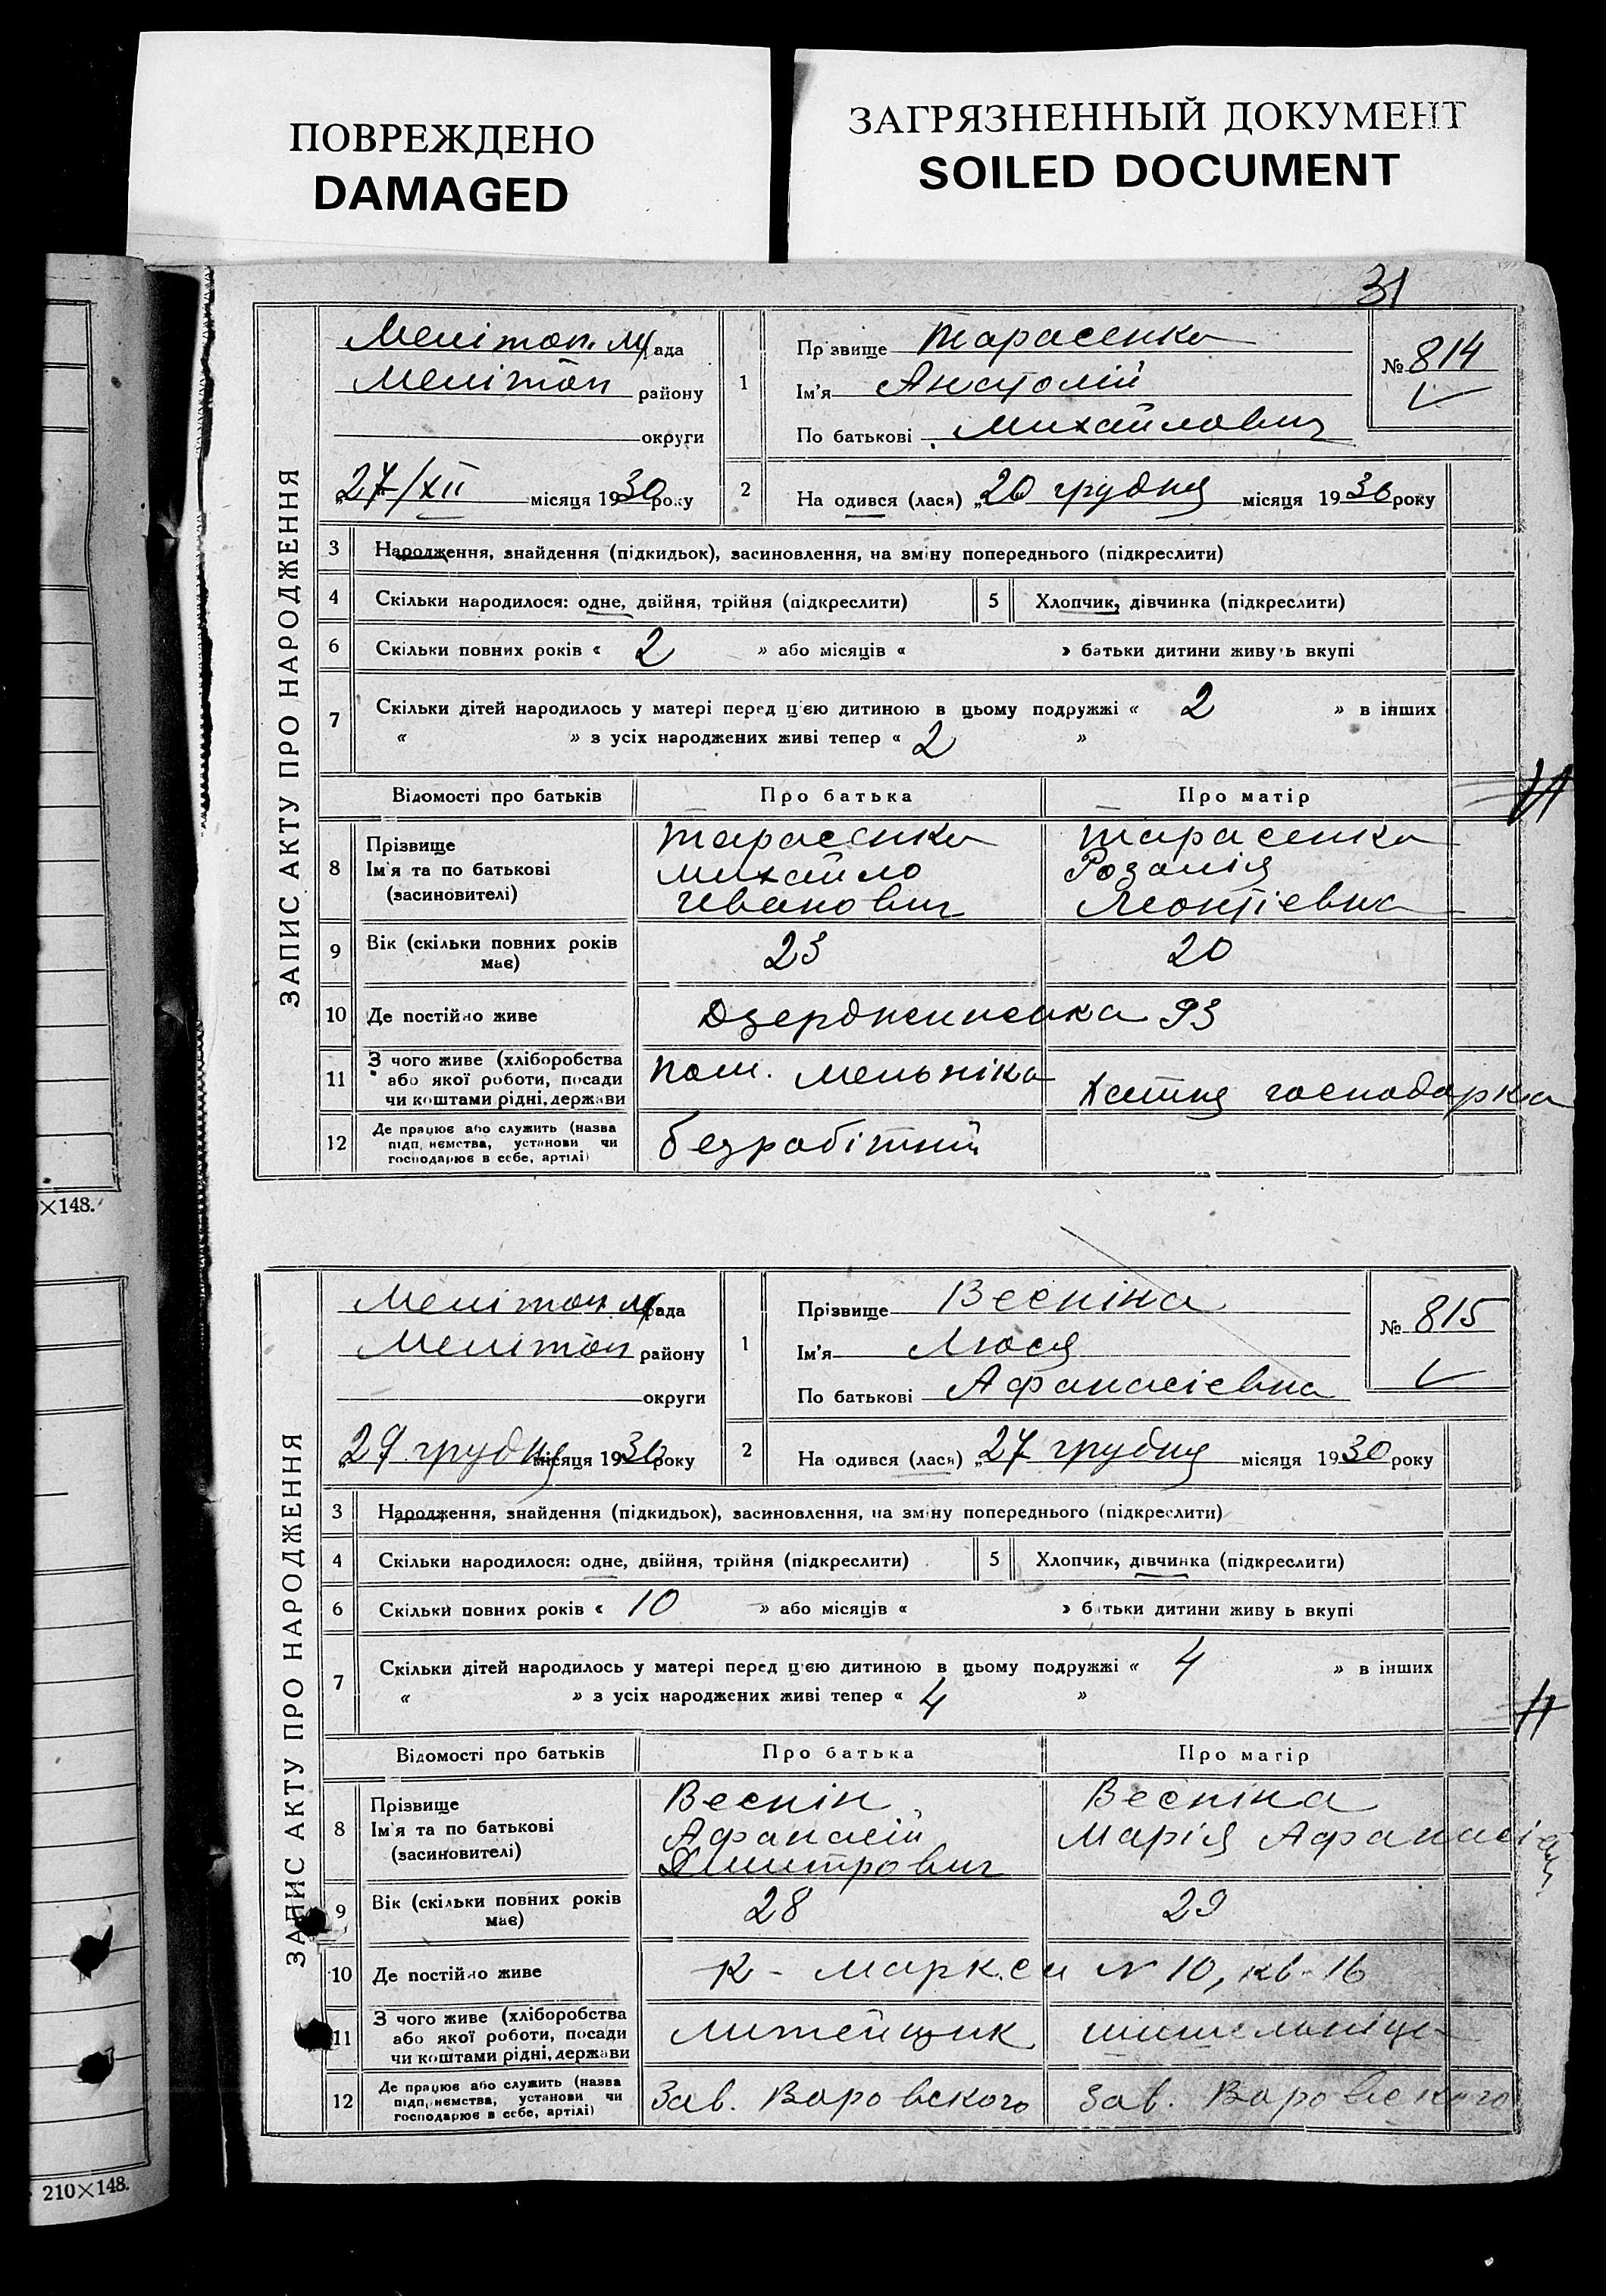 ПОВРЕЖДЕНО
DAMAGED
ЗАГРЯЗНЕННЫЙ ДОКУМЕНТ
SOILED DOCUMENT
31
ЗАПИС АКТУ ПРО НАРОДЖЕННЯ
Мелітоп. м/рада
Мелітоп району
округи
„27/XII місяця 1930 року
1
Прізвище Тарасенко
Ім'я Анатолій
По батькові Михайлович
№ 814
2
На одився (лася) „20 грудня місяця 1930 року
3 Народження, знайдення (підкидьок), засиновлення, на зміну попереднього (підкреслити)
4 Скільки народилося: одне, двійня, трійня (підкреслити) 5 Хлопчик, дівчинка (підкреслити)
6 Скільки повних років « 2 » або місяців « » батьки дитини живуть вкупі
7 Скільки дітей народилось у матері перед цією дитиною в цьому подружжі « 2 » в інших
« » з усіх народжених живі тепер « 2 »
Відомості про батьків Про батька Про матір
8 Прізвище
Ім'я та по батькові
(засиновителі)
Тарасенко
Михайло
Іванович
Тарасенко
Розалія
Леонтієвна
9 Вік (скільки повних років
має)
23 20
10 Де постійно живе Дзердженська 93
11 З чого живе (хліборобства
або якої роботи, посади
чи коштами рідні, держави
пом. мельніка
Хатня господарка
12 Де працює або служить (назва
підприємства, установи чи
господарює в себе, артілі)
безробітній
×148.
ЗАПИС АКТУ ПРО НАРОДЖЕННЯ
Мелітоп. м/рада
Мелітоп району
округи
„29 грудня місяця 1930 року
1
Прізвище Веспіна
Ім'я Люся
По батькові Афанасієвна
№ 815
2
На одився (лася) „27 грудня місяця 1930 року
3 Народження, знайдення (підкидьох), засиновлення, на зміну попереднього (підкреслити)
4 Скільки народилося: одне, двійня, трійня (підкреслити) 5 Хлопчик, дівчинка (підкреслити)
6 Скільки повних років « 10 » або місяців « » батьки дитини живу ь вкупі
7 Скільки дітей народилось у матері перед цією дитиною в цьому подружжі « 4 » в інших
« » з усіх народжених живі тепер « 4 »
Відомості про батьків Про батька Про матір
8 Прізвище
Ім'я та по батькові
(засиновителі)
Веспін
Афанасій
Дмитрович
Веспіна
Марія
9 Вік (скільки повних років
має)
28 29
10 Де постійно живе К - Маркса N 10, кв. 16
11 З чого живе (хліборобства
або якої роботи, посади
чи коштами рідні, держави
литейщик шишельніця
12 Де працює або служить (назва
підприємства, установи чи
господарює в себе, артілі)
Зав. Воровского Зав. Воровского
210×148.